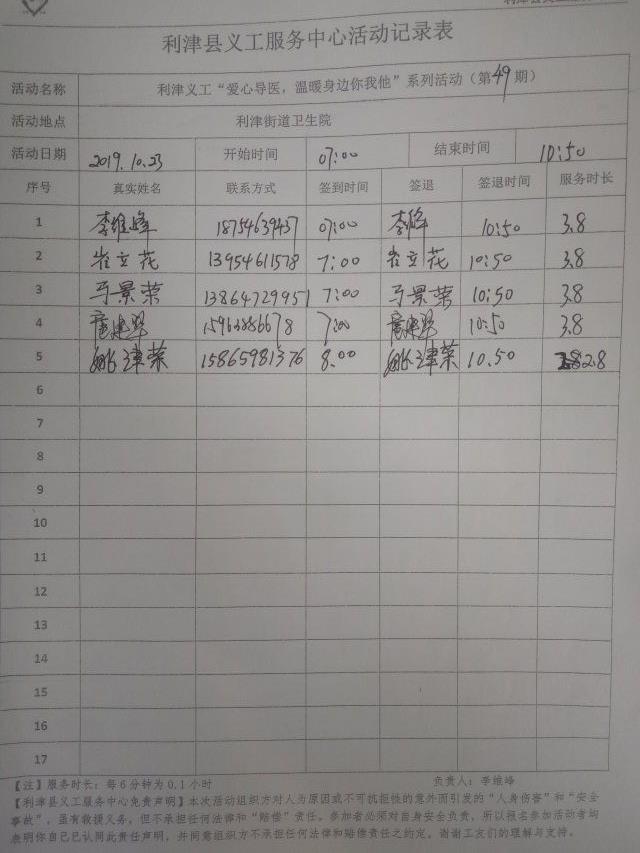 利津县义工服务中心活动记录表
活动名称 利津义工“爱心导医，温暖身边你我他”系列活动（第49期）
活动地点 利津街道卫生院
活动日期 2019.10.23 开始时间 07:00 结束时间 10:50
序号 真实姓名 联系方式 签到时间 签退 签退时间 服务时长
1 李维峰 18754639437 07:00 李峰 10:50 3.8
2 崔立花 13954611578 7:00 崔立花 10:50 3.8
3 马景荣 13864729951 7:00 马景荣 10:50 3.8
4 7:00 10:50 3.8
5 姚津荣 15865981376 8.00 姚津荣 10.50 2.8
6
7
8
9
10
11
12
13
14
15
16
17
【注】服务时长：每6分钟为0.1小时 负责人：李维峰
【利津县义工服务中心免责声明】本次活动组织方对人为原因或不可抗拒性的意外而引发的“人身伤害”和“安全
事故”，虽有救援义务，但不承担任何法律和“赔偿”责任。参加者必须对自身安全负责，所以报名参加活动者均
表明你自己已认同此责任声明，并同意组织方不承担任何法律和赔偿责任之约定。谢谢工友们的理解与支持。